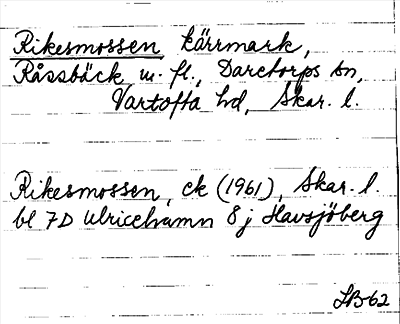 Rikesmossen kärrmark,
Råssbäck m. fl., Daretorps sn,
Vartofta hd, Skar. l.
Rikesmossen, ek (1961), Skar. l.
bl 7D Ulricehamn 8 j Havsjöberg
LB-62